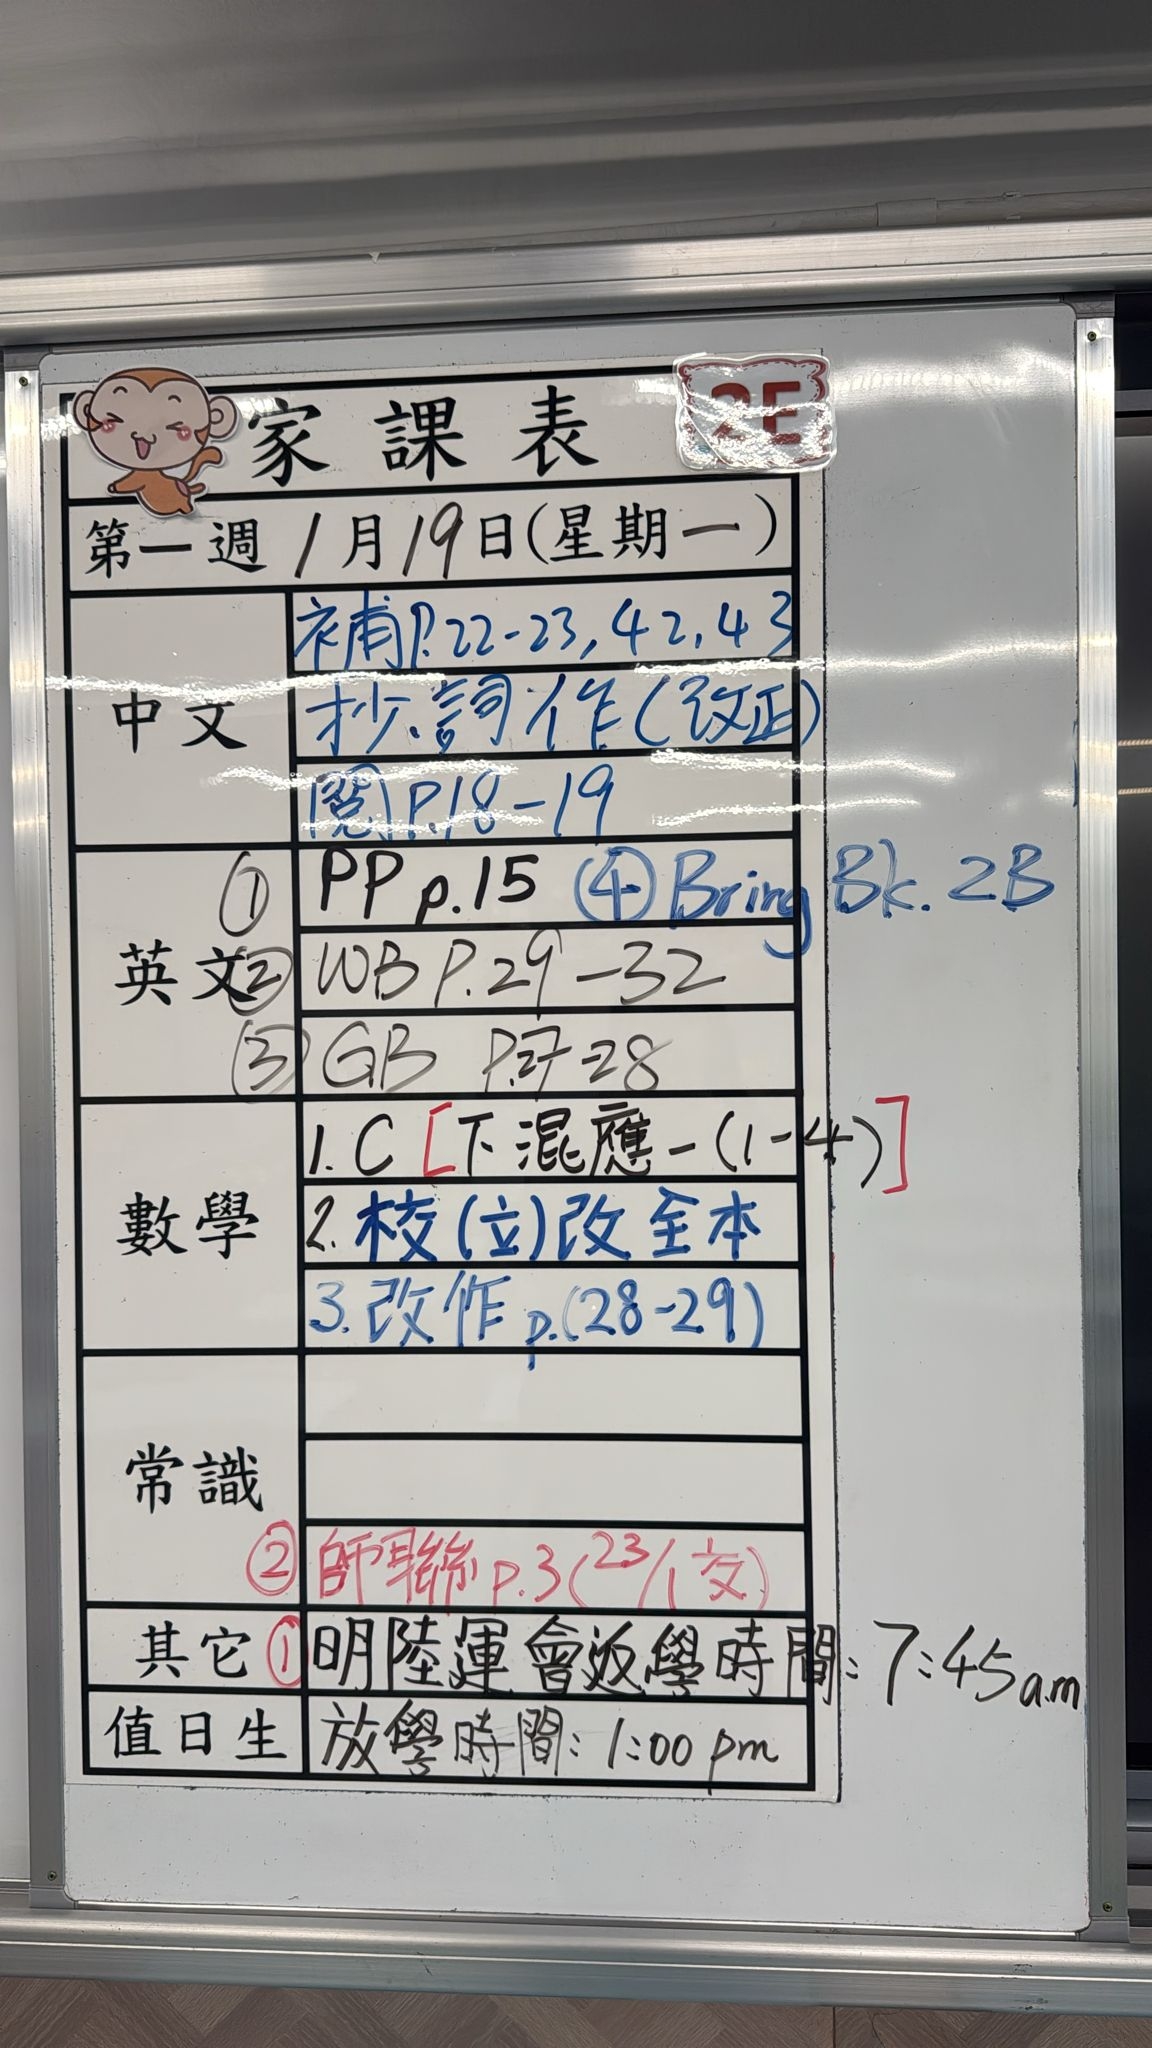 家課表 2E
第一週 1月19日(星期一)
中文
補P.22-23,42,43
抄.詞作(改正)
閱P.18-19
英文
① PP p.15 ④ Bring Bk. 2B
② WB P.29-32
③ GB P.27-28
數學
1. C [下混應-(1-4)]
2. 校(立)改全本
3. 改作 p.(28-29)
常識
② 師聯 p.3 (23/1交)
其它 ① 明陸運會返學時間: 7:45am
值日生 放學時間: 1:00 pm